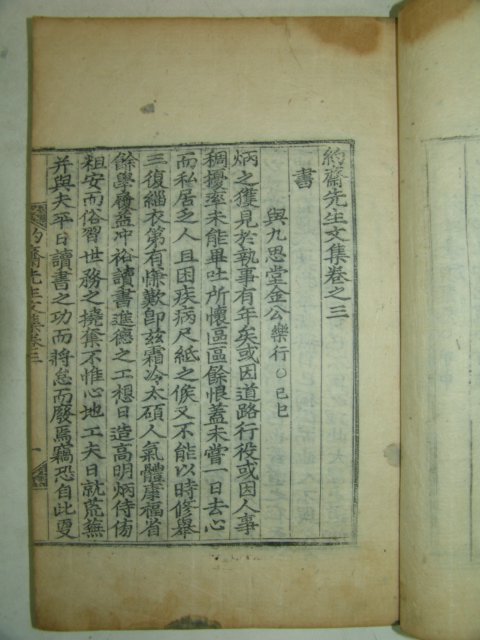 約齋先生文集卷之三
書
與九思堂金公樂行○己巳
炳之獲見於執事有年矣或因道路行役或因人事
稠擾率未能畢吐所懷區區餘恨蓋未嘗一日去心
而私居乏人且因疾病尺紙之候又不能以時修擧
三復緇衣第有慊歎卽玆霜冷太碩人氣體康福省
餘學履益冲裕讀書進德之工想日造高明炳侍傍
粗安而俗習世務之撓奪不惟心地工夫日就荒蕪
并與夫平日讀書之功而將怠而廢焉竊恐自此更
約齋先生文集卷三
一